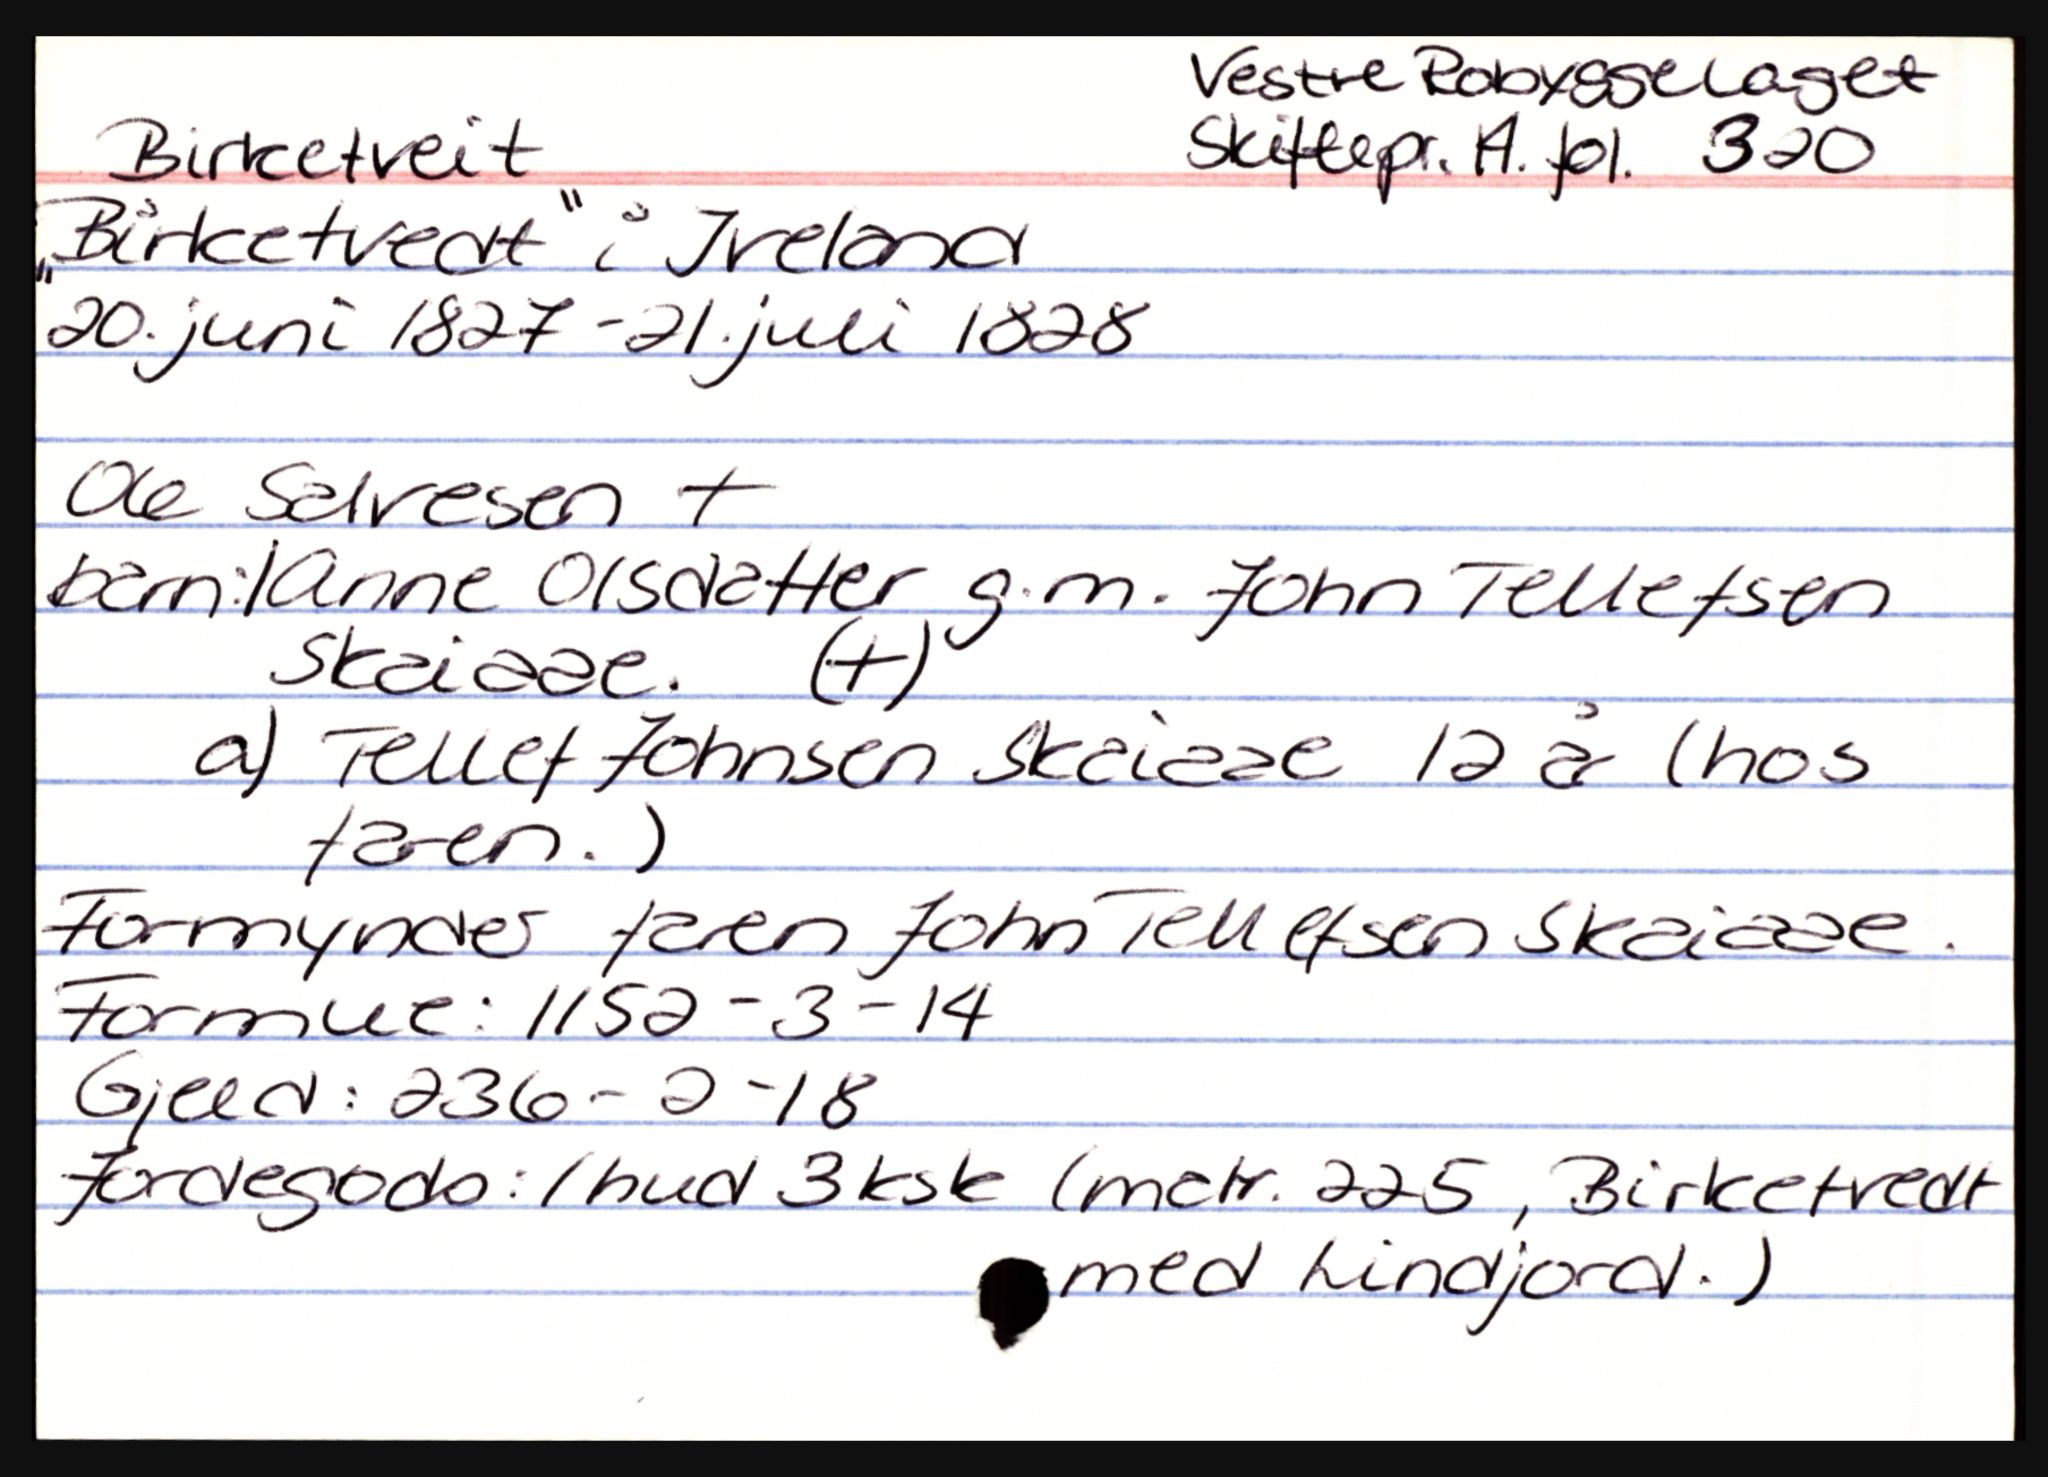 Vestre Robyggelaget
Birketveit Skiftepr. A. fol. 320
„Birketvedt“ i Iveland
20. juni 1827 - 21. juli 1828
Ole Salvesen +
barn:/Anne Olsdatter g.m. John Tellefsen
Skaiaae. (+)
a) Tellef Johnsen Skaiaae 12 år (hos
faren.)
Formynder faren John Tellefsen Skaiaae.
Formue: 1152 - 3 - 14
Gjeld: 236 - 2 - 18
Jordegods: 1 hud 3 ksk (matr. 225, Birketvedt
med Lindjord.)